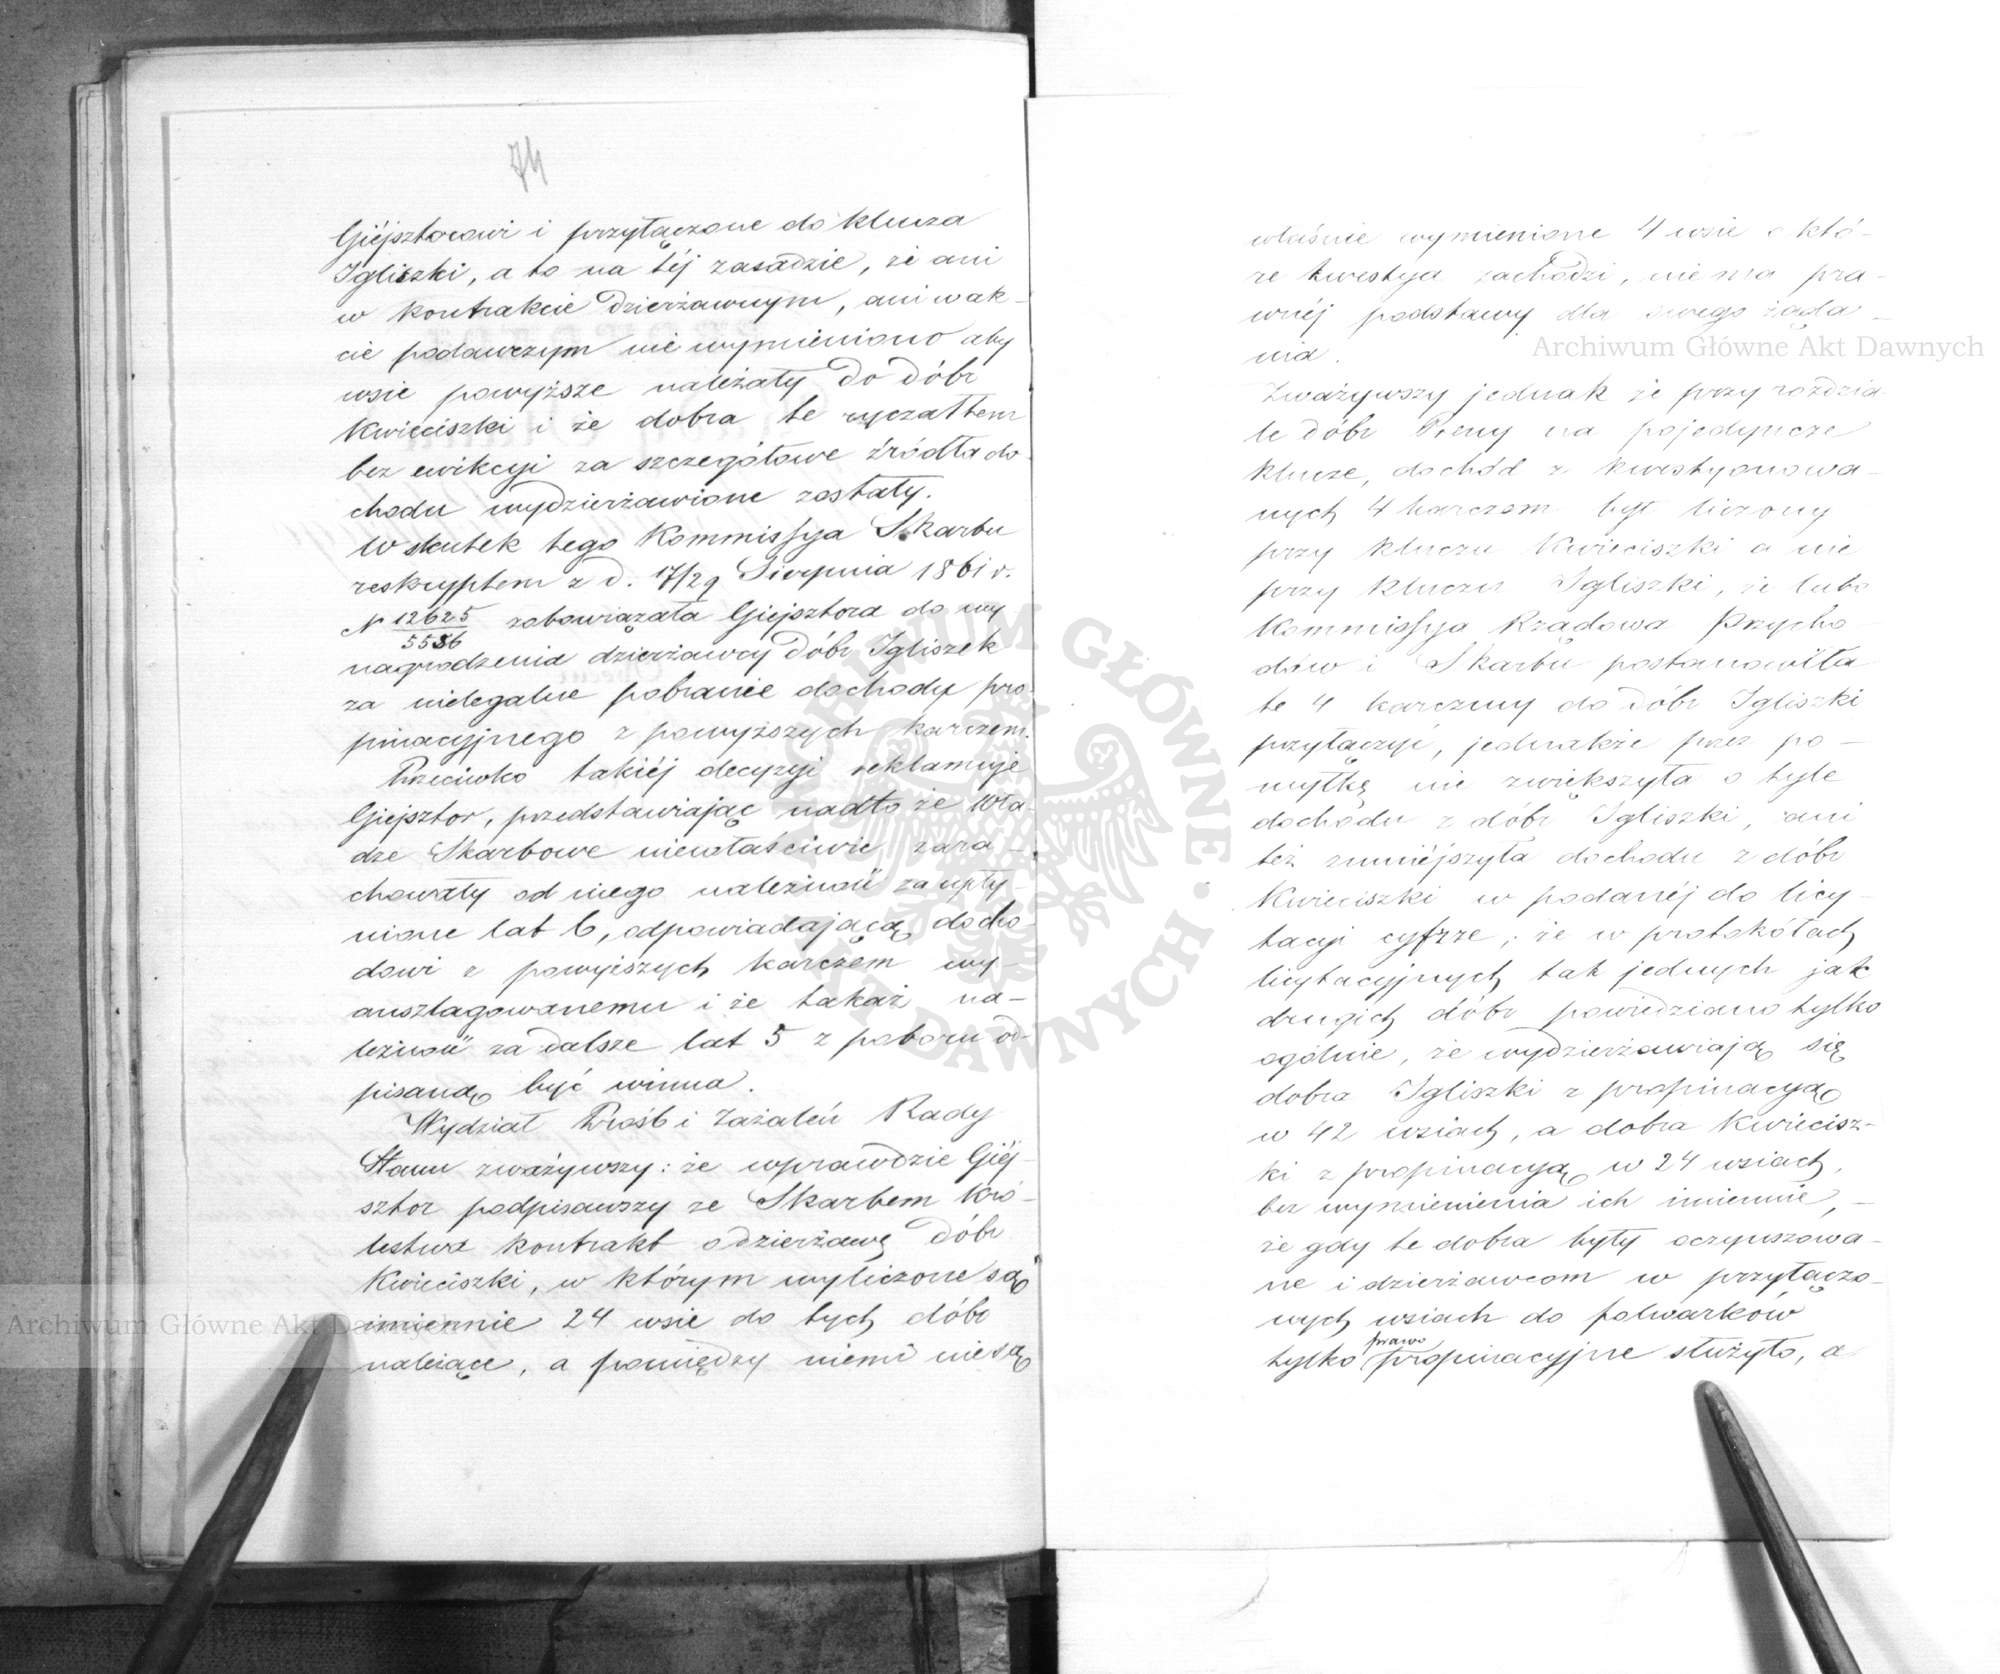 74
Giéjsztorowi i przyłączone do klucza
Igliszki, a to na téj zasadzie, że ani
w kontrakcie dzierżawnym, ani w ak-
cie podawczym nie wymieniono aby
wsie powyższe należały do dóbr
Kwieciszki i że dobra te ryczałtem
bez ewikcyi za szczegółowe źródła do-
chodu wydzierżawione zostały.
W skutek tego Kommissya Skarbu
reskryptem z d. 17/29 Sierpnia 1861 r.
N 12625/5586 zobowiązała Giejsztora do wy
nagrodzenia dzierżawcy dóbr Igliszek
za nielegalne pobranie dochodu pro-
pinacyjnego z powyższych karczem.
Przeciwko takiéj decyzyi reklamuje
Giejsztor, przedstawiając nadto że Wła-
dze Skarbowe niewłaściwie zara-
chowały od niego należność za upły-
nione lat 6, odpowiadającą docho-
dowi z powyższych karczem wy-
anszlagowanemu i że takaż na-
leżność za dalsze lat 5 z poboru od-
pisaną być winna.
Wydział Próśb i Zażaleń Rady
Stanu zważywszy: że wprawdzie Giéj-
sztor podpisawszy ze Skarbem Kró-
lestwa kontrakt o dzierżawę dóbr
Kwieciszki, w którym wyliczone są
imiennie 24 wsie do tych dóbr
należące, a pomiędzy niemi nie są
właśnie wymienione 4 wsie o któ-
re kwestya zachodzi, niema pra-
wnéj podstawy dla swego żąda-
nia.
Zważywszy jednak że przy rozdzia-
le dóbr Preny na pojedyncze
klucze, dochód z kwestyonowa-
nych 4 karczem był liczony
przy kluczu Kwieciszki a nie
przy kluczu Igliszki, że lubo
Kommissya Rządowa Przycho-
dów i Skarbu postanowiła
te 4 karczmy do dóbr Igliszki
przyłączyć, jednakże przez po-
myłkę nie zwiększyła o tyle
dochodu z dóbr Igliszki, ani
też zmniéjszyła dochodu z dóbr
Kwieciszki w podanéj do licy-
tacyi cyfrze; że w protokółach
licytacyjnych tak jednych jak
drugich dóbr powiedziano tylko
ogólnie, że wydzierżawiają się
dobra Igliszki z propinacyą
w 42 wsiach, a dobra Kwiecisz-
ki z propinacyą w 24 wsiach,
bez wymienienia ich imiennie,-
że gdy te dobra były oczynszowa-
ne i dzierżawcom w przyłączo-
nych wsiach do folwarków
tylko prawo propinacyjne służyło, a
Archiwum Główne Akt Dawnych
Archiwum Główne Akt Dawnych
ARCHIWUM GŁÓWNE AKT DAWNYCH